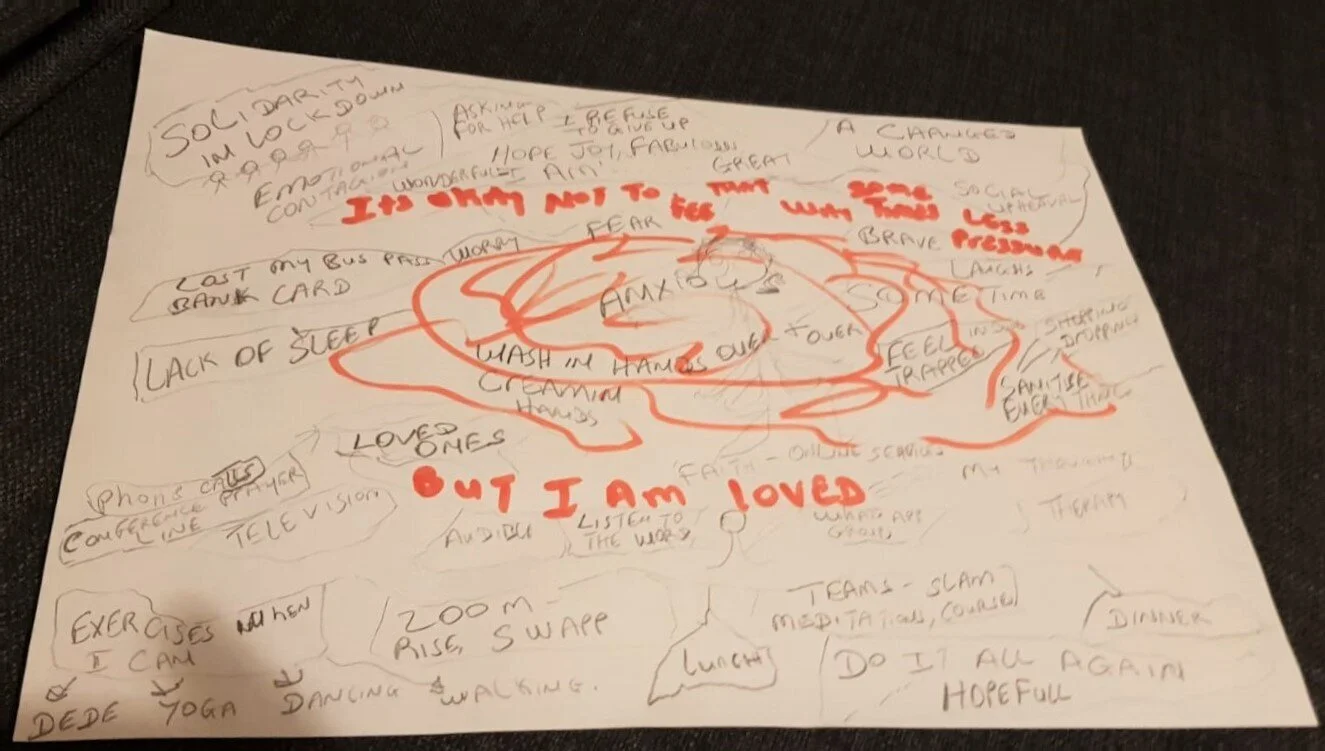 SOLIDARITY
IN LOCKDOWN
EMOTIONAL
CONTAGION
ASKING
FOR HELP
I REFUSE
TO GIVE UP
HOPE JOY, FABULOUS
WONDERFUL I AM
GREAT
A CHANGES
WORLD
SOCIAL
UPHEAVAL
Its Okay NOT TO FEE THAT WAY SOME TIMES LESS PRESSURE
FEAR
WORRY
BRAVE
LAUGHS
LOST MY BUS PASS
BANK CARD
ANXIOUS
SOMETIME
LACK OF SLEEP
WASH IN HANDS OVER + OVER
CREAMIN
HANDS
FEEL
TRAPPED
SHOPPING
DROPPING
SANITISE
EVERY THING
LOVED
ONES
PHONE CALLS
PRAYER
CONFERENCE
LINE
TELEVISION
FAITH - ONLINE SERVICES
MY THOUGHTS
BUT I AM LOVED
AUDIBLE
LISTEN TO
THE WORD,
WHATS APP
GROUPS
THERAPY
EXERCISES WHEN
I CAN
DEDE YOGA DANCING WALKING.
ZOOM -
RISE, SWAPP
LUNCH
TEAMS - SLAM
MEDITATIONS, COURSES
DINNER
DO IT ALL AGAIN
HOPEFULL